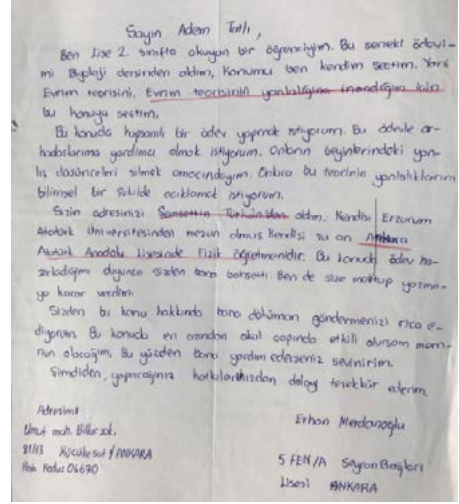 Sayın Adem Tatlı,
Ben Lise 2. sınıfta okuyan bir öğrenciyim. Bu seneki ödevi-
mi Biyoloji dersinden aldım, Konumu ben kendim seçtim. Yani
Evrim teorisini. Evrim teorisinin yanlışlığına inandığım için
bu konuyu seçtim.
Bu konuda kapsamlı bir ödev yapmak istiyorum. Bu ödevle ar-
kadaşlarıma yardımcı olmak istiyorum. Onların beyinlerindeki yan-
lış düşünceleri silmek amacındayım. Onlara bu teorinin yanlışlıklarını
bilimsel bir şekilde açıklamak istiyorum.
Sizin adresinizi Şemsettin aldım. Kendisi Erzurum
Atatürk Üniversitesinden mezun olmuş. Kendisi şu an Ankara
Atatürk Anadolu Lisesinde Fizik öğretmenidir. Bu konuda ödev ha-
zırladığımı duyunca sizden bana bahsetti. Ben de size mektup yazma-
ya karar verdim.
Sizden bu konu hakkında bana döküman göndermenizi rica e-
diyorum. Bu konuda en azından okul çapında etkili olursam mem-
nun olacağım. Bu yüzden bana yardım ederseniz sevinirim.
Şimdiden, yapacağınız katkılarınızdan dolayı teşekkür ederim.
Adresim:
Umut mah. Billur sok.
Küçükesat / ANKARA
Posta Kodu: 06670
Erhan
5 FEN/A Seyranbağları
Lisesi ANKARA